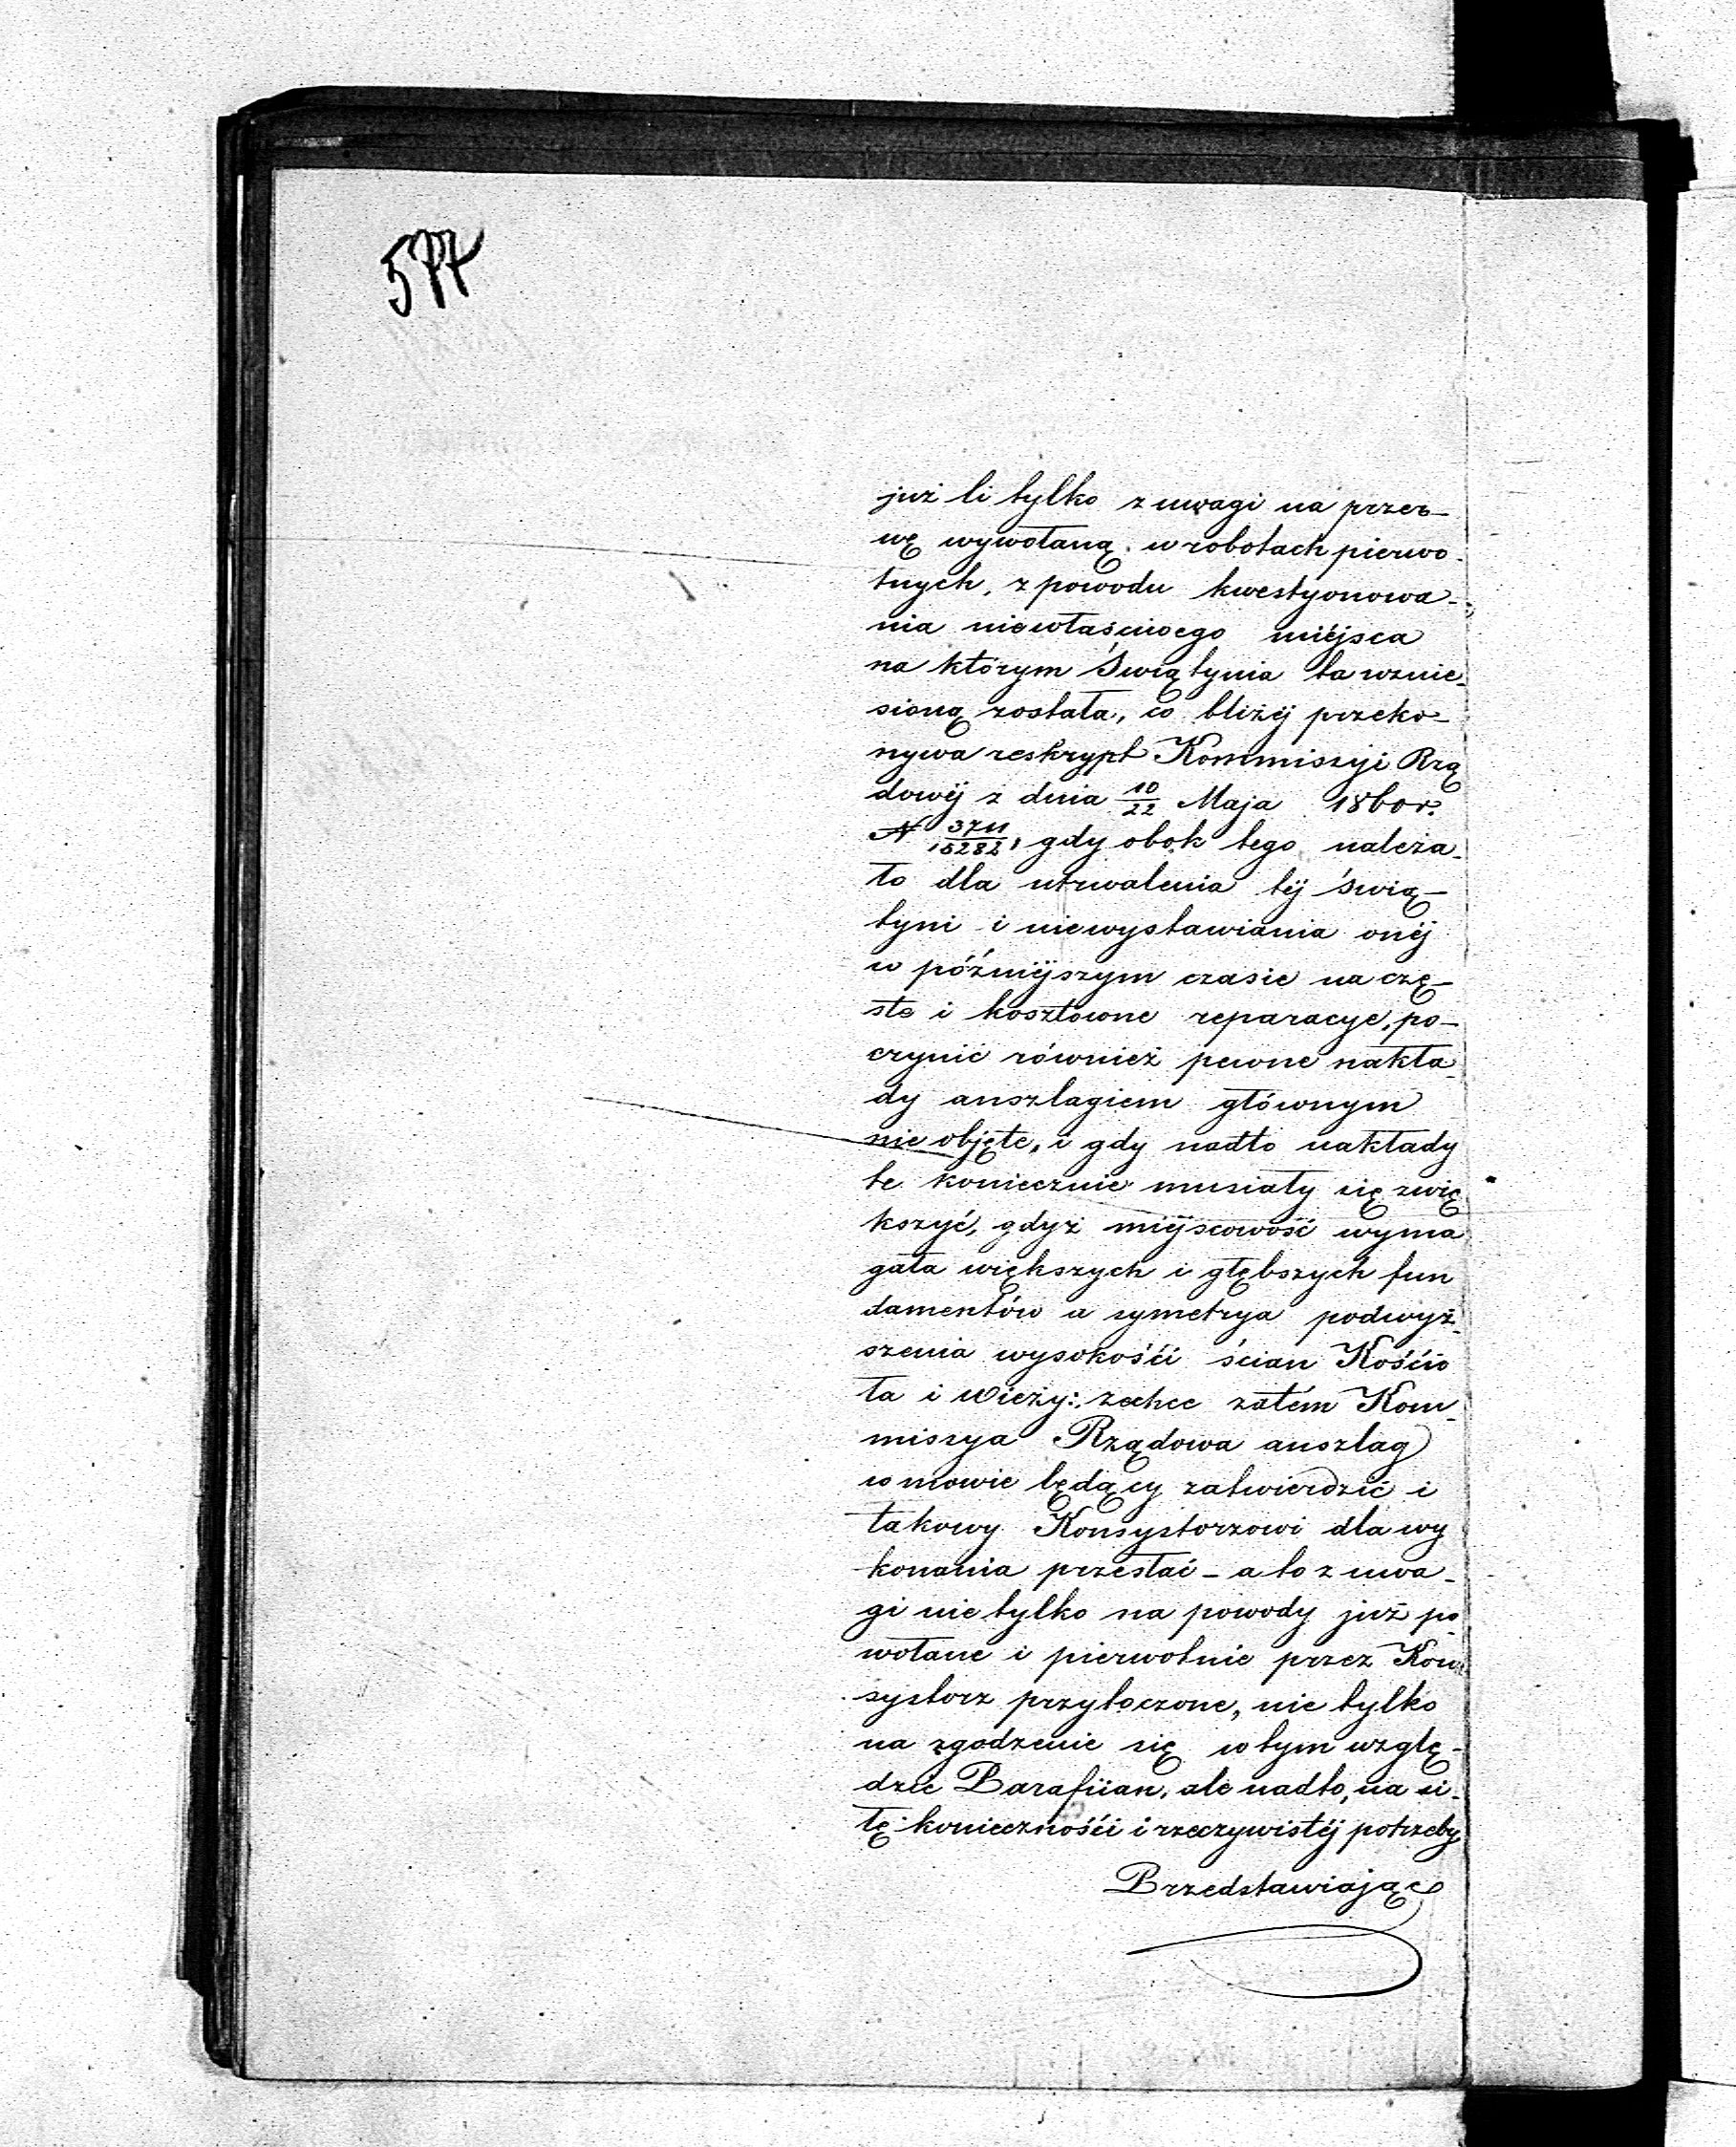 577
już li tylko z uwagi na przer-
wę wywołaną w robotach pierwo-
tnych, z powodu kwestyonowa-
nia niewłaściwego miéjsca
na którym Świątynia ta wznie-
sioną została, co bliżéj przeko-
nywa reskrypt Kommissyi Rzą
dowéj z dnia 10/22 Maja 1860 r.
N 3711/15282, gdy obok tego należa-
ło dla utrwalenia téj świą-
tyni i niewystawiania onéj
w późniéjszym czasie na czę-
ste i kosztowne reparacye, po-
czynić również pewne nakła-
dy anszlagiem głównym
nie objęte, i gdy nadto nakłady
te koniecznie musiały się zwię
kszyć, gdyż miéjscowość wyma
gała większych i głębszych fun
damentów a symetrya podwyż-
szenia wysokośći ścian Kośćio
ła i Wieży: zechce zatém Kom-
missya Rządowa anszlag
w mowie będący zatwierdzić i
takowy Konsystorzowi dla wy
konania przesłać - a to z uwa-
gi nie tylko na powody już po-
wołane i pierwotnie przez Kon-
systorz przytoczone, nie tylko
na zgodzenie się w tym wzglę-
dzie Parafiian, ale nadto, na si-
łę koniecznośći i rzeczywistéj potrzeby
Przedstawiając